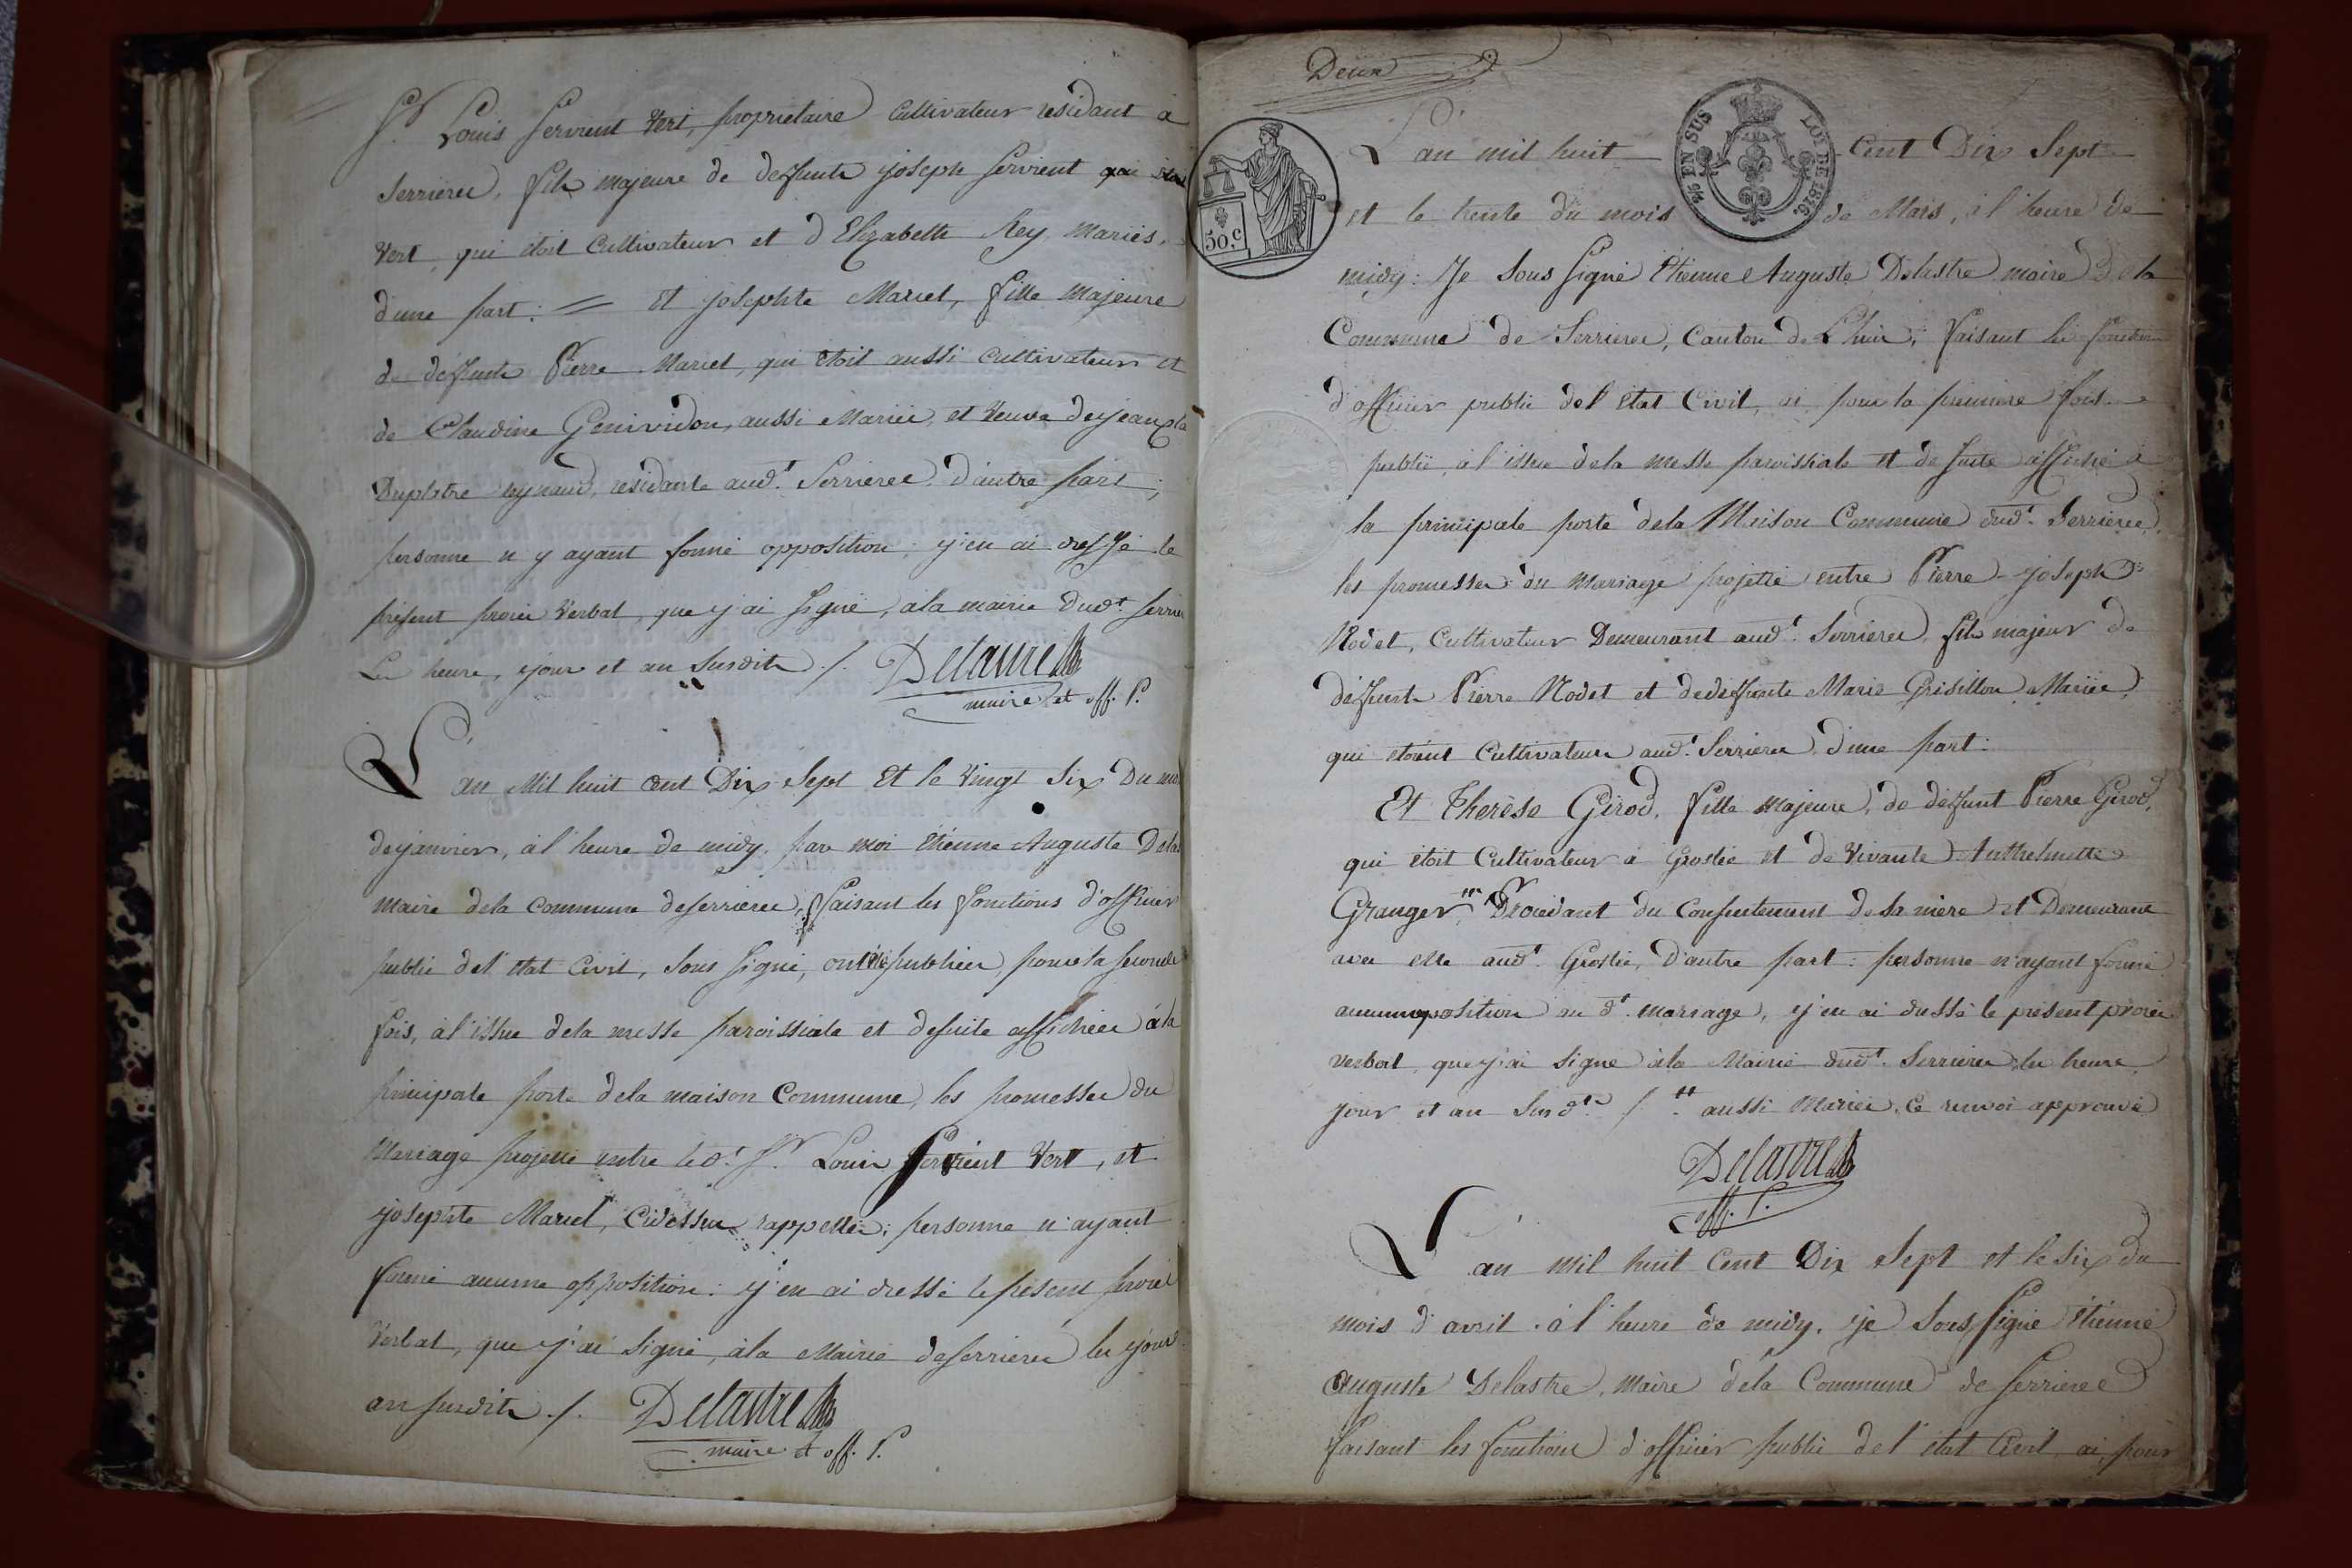 Sr. Louis Servient Vert, propriétaire Cultivateur residant a
Serrieres, fils majeure de deffunts joseph Servient
Vert, qui étoit Cultivateur et d'Elizabeth Rey, mariés,
d'une part : = Et josephte Marcel, fille majeure
de déffunts Pierre Marcel, qui étoit aussi Cultivateur et
de Claudine Genividon, aussi Mariée, et Veuve de jean
Duplatre reynaud, residante aud.t Serrieres d'autre part ;
personne n'y ayant formé opposition ; j'en ai dressé le
présent procés Verbal, que j'ai Signé, a la mairie dud.t Serrier
Les heure, jour et an Susdits ./. Delastre
maire et off. P.
L'an Mil huit cent Dix Sept Et le Vingt Six Du mois
de janvier, à l'heure de midy, par moi Etienne Auguste Delas
maire de la Commune de Serrieres, faisant les fonctions d'officier
public de l'etat Civil, Sous Signé, ont été publiées, pour la seconde
fois, à l'issue de la messe paroissiale et de suite affichées à la
principale porte de la maison Commune, les promesses du
Mariage projetté entre led.t Sr. Louis Servient Vert, et
josephte Marcel, Cidessus rappellés ; personne n'ayant
formé aucune opposition : j'en ai dressé le présent procès
Verbal, que j'ai Signé, à la Mairie de Serrieres les jour
an susdits ./. Delastre
maire et off. P.
Deux
L'an mil huit Cent Dix Sept
et le trente du mois de Mars, à l'heure de
2/5 EN SUS LOI DE 1816.
50.c
midy : Je Sous Signé Etienne Auguste Delastre maire de la
Commune de Serrieres, Canton de L'huis, faisant les fonctions
d'officier public de l'état Civil, ai pour la première fois
publié, à l'issue de la messe paroissiale et de suite affiché à
la principale porte de la Maison Commune dud.t Serrieres,
les promesses du Mariage projetté entre Pierre-joseph
Nodet, Cultivateur Demeurant aud.t Serrieres, fils majeur de
déffunts Pierre Nodet et de deffunte Marie Grisillon Mariés,
qui étoient Cultivateurs aud.t Serrieres d'une part :
Et Therèse Girod, fille majeure, de déffunt Pierre Girod,
qui étoit Cultivateur à Groslée et de Vivante Anthelmette
Granger Procédant du Consentement de sa mère et Demeurant
avec elle aud.t Groslée, D'autre part : personne n'ayant formé
aucune opposition au d.t mariage, j'en ai dressé le présent procès
verbal, que j'ai Signé à la Mairie dud.t Serrieres les heure,
jour et an Susd.ts / aussi Mariés. Ce renvoi approuvé
Delastre
off. P.
L'an mil huit Cent Dix Sept et le six du
mois d'avril, à l'heure de midy, je Sous Signé Etienne
Auguste Delastre, Maire de la Commune de Serrieres
faisant les fonctions d'officier public de l'état Civil, ai pour